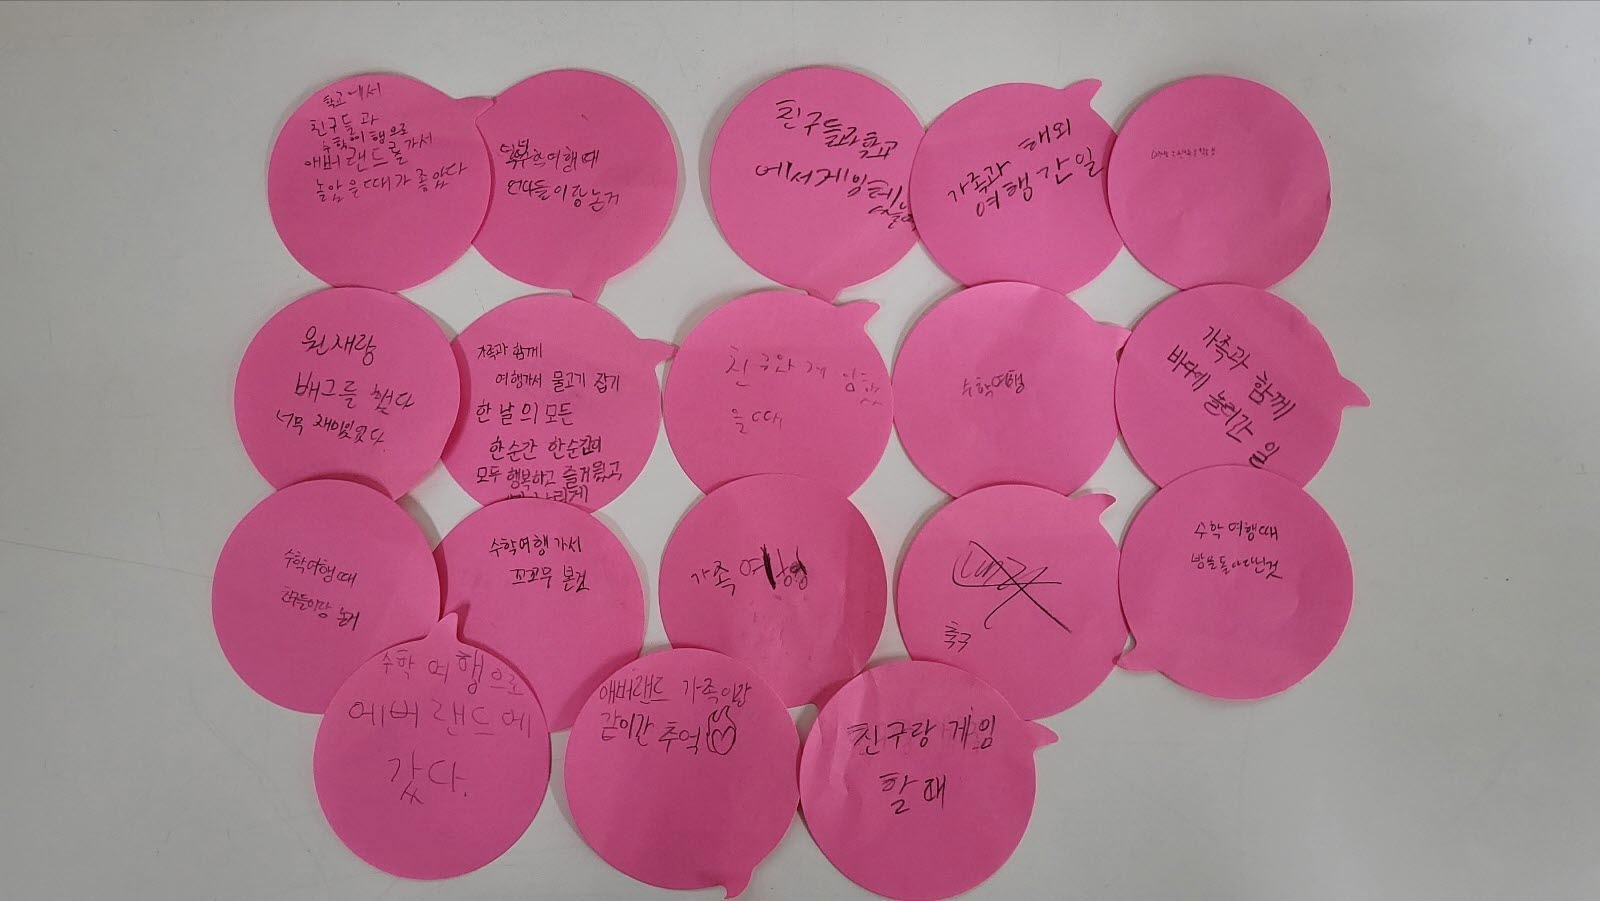 학교에서
친구들과
수학여행으로
애버랜드를가서
놀았을때가 좋았다
수학여행때
언니들이랑논거
친구들과학교
에서게임
가족과 해외
여행간일
원재랑
배그를 했다
너무 재미있었다.
가족과 함께
여행가서 물고기 잡기
한 날의 모든
한순간 한순간이
모두 행복하고 즐거웠고,
친구와게임했
을때
수학여행
가족과 함께
바다에 놀러간 일
수학여행때
친구들이랑 논거
수학여행 가서
꼬꼬무 본것
가족 여행
축구
수학여행때
방을돌아다닌것
수학 여행으로
에버랜드에
갔다.
애버랜드 가족이랑
같이간 추억
친구랑 게임
할때